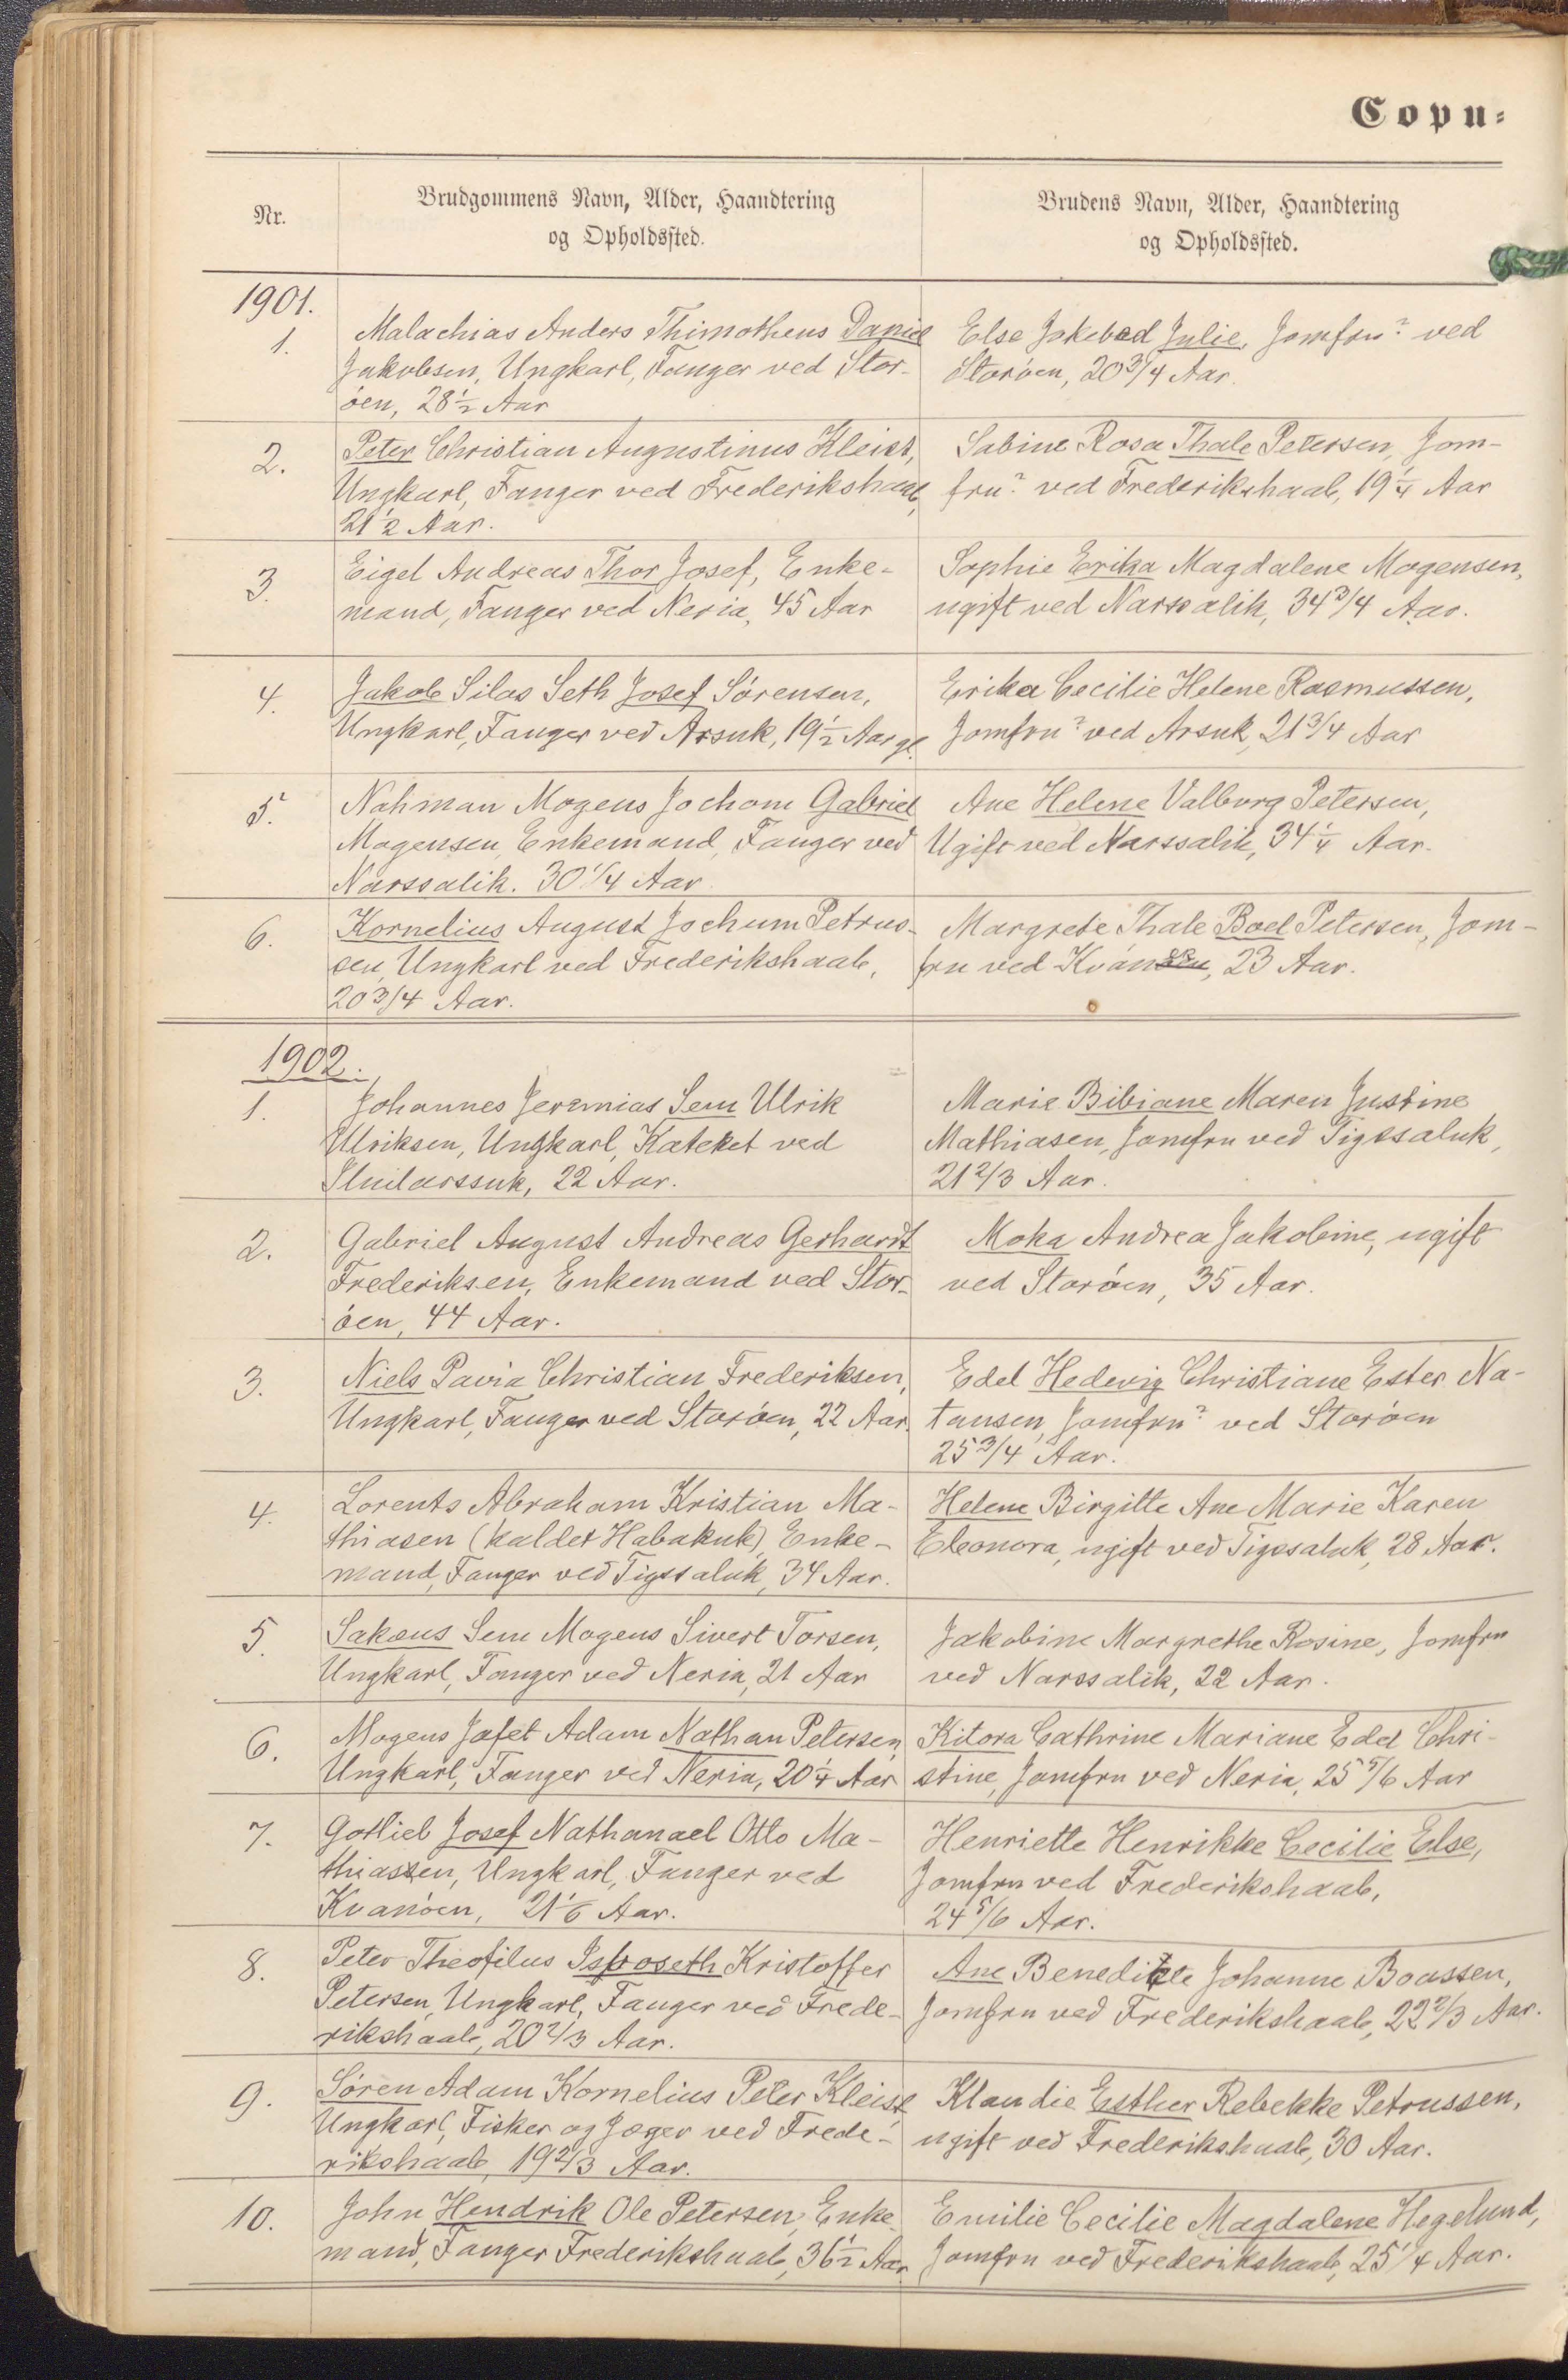 Copu=
Nr.
Brudgommens Navn, Alder, Haandtering
og Opholdssted.
Brudens Navn, Alder, Haandtering
og Opholdssted.
1901.
1.
Malachias Anders Thimotheus Daniel
Jakobsen, Ungkarl, Fanger ved Stor-
øen, 28 1/2 Aar
Else Jokebed Julie, Jomfru? ved
Storøen, 20 3/4 Aar.
2.
Peter Christian Augustinus Kleist,
Ungkarl, Fanger ved Frederikshaab,
21 1/2 Aar.
Sabine Rosa Thale Petersen, Jom-
fru? ved Frederikshaab, 19 1/4 Aar
3.
Eigel Andreas Thor Josef, Enke-
mand, Fanger ved Neria, 45 Aar
Sophie Erika Magdalene Mogensen,
ugift ved Narssalik, 34 3/4 Aar.
4.
Jakob Silas Seth Josef Sørensen,
Ungkarl, Fanger ved Arsuk, 19 1/2 Aar gl.
Erika Cecilie Helene Rasmussen,
Jomfru? ved Arsuk, 21 3/4 Aar
5.
Nahman Mogens Jochom Gabriel
Mogensen, Enkemand, Fanger ved
Narssalik. 30 1/4 Aar.
Ane Helene Valborg Petersen,
Ugift ved Narssalik, 34 1/4 Aar.
6.
Kornelius August Jochum Petrus-
sen, Ungkarl ved Frederikshaab,
20 3/4 Aar.
Margrete Thale Boel Petersen, Jom-
fru ved Kvanøen, 23 Aar.
1902.
1.
Johannes Jeremias Sem Ulrik
Ulriksen, Ungkarl, Kateket ved
Iluilarssuk, 22 Aar.
Marie Bibiane Maren Justine
Mathiasen, Jomfru ved Tigssaluk,
21 2/3 Aar.
2.
Gabriel August Andreas Gerhardt
Frederiksen, Enkemand ved Stor-
øen, 44 Aar.
Moka Andrea Jakobine, ugift
ved Storøen, 35 Aar.
3.
Niels Pavia Christian Frederiksen,
Ungkarl, Fanger ved Storøen, 22 Aar.
Edel Hedevig Christiane Ester Na-
tansen, Jomfru? ved Storøen
25 3/4 Aar.
4.
Lorents Abraham Kristian Ma-
thiasen (kaldet Habakuk), Enke-
mand, Fanger ved Tigssaluk, 34 Aar.
Helene Birgitte Ane Marie Karen
Eleonora, ugift ved Tigssaluk, 28 Aar.
5.
Sakæus Sem Mogens Sivert Torsen,
Ungkarl, Fanger ved Neria, 21 Aar
Jakobine Margrethe Rosine, Jomfru
ved Narssalik, 22 Aar.
6.
Mogens Jafet Adam Nathan Petersen,
Ungkarl, Fanger ved Neria, 20 1/4 Aar
Kitora Cathrine Mariane Edel Chri-
stine, Jomfru ved Neria, 25 5/6 Aar
7.
Gotlieb Josef Nathanael Otto Ma-
thiassen, Ungkarl, Fanger ved
Kvanøen, 21 1/6 Aar.
Henriette Henrikke Cecilie Else,
Jomfru ved Frederikshaab,
24 5/6 Aar.
8.
Peter Theofilus Isboseth Kristoffer
Petersen, Ungkarl, Fanger ved Frede-
rikshaab, 20 2/3 Aar.
Ane Benedikte Johanne Boassen,
Jomfru ved Frederikshaab, 22 2/3 Aar.
9.
Søren Adam Kornelius Peter Kleist
Ungkarl, Fisker og Jæger ved Frede-
rikshaab, 19 2/3 Aar.
Klaudie Esther Rebekke Petrussen,
ugift ved Frederikshaab, 30 Aar.
10.
John Hendrik Ole Petersen, Enke-
mand, Fanger Frederikshaab, 36 1/2 Aar
Emilie Cecilie Magdalene Hegelund,
Jomfru ved Frederikshaab, 25 1/4 Aar.